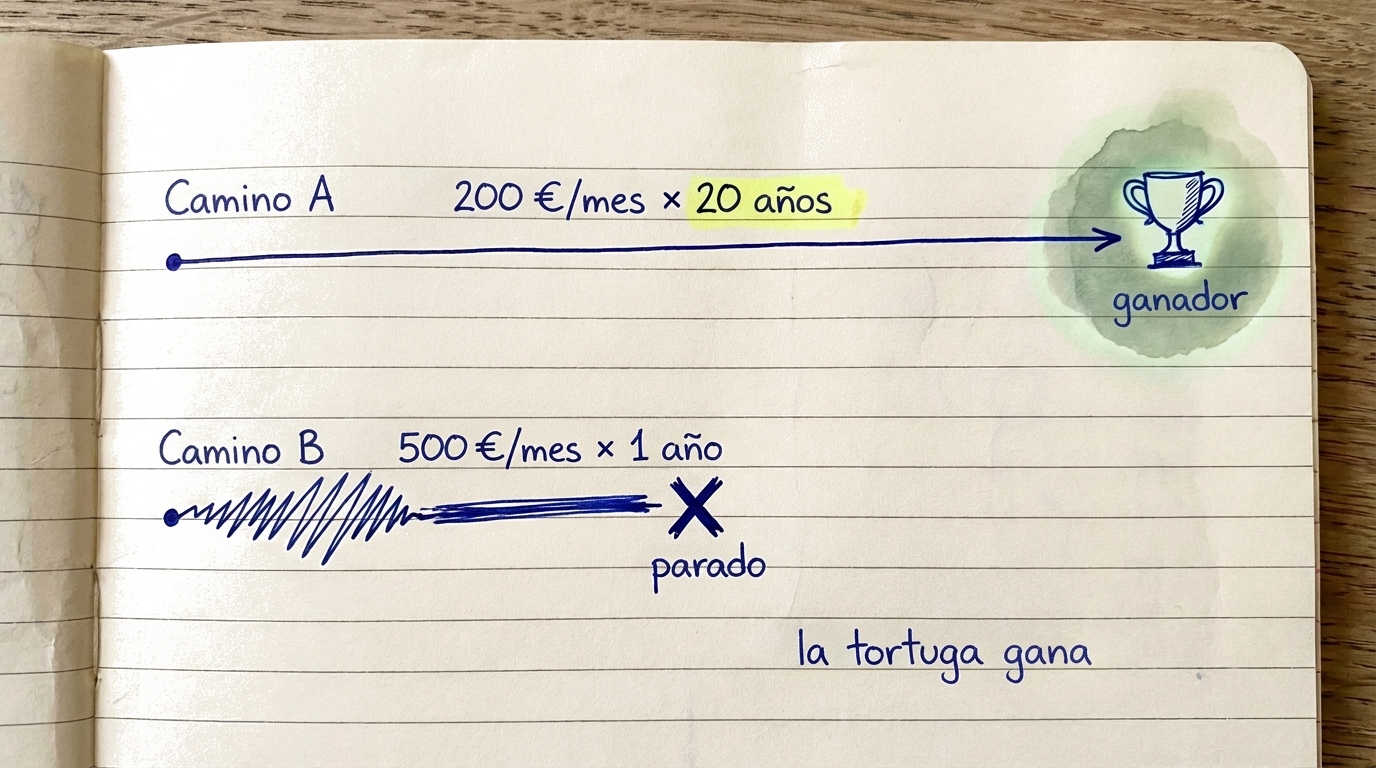 Camino A 200 €/mes × 20 años
ganador
Camino B 500 €/mes × 1 año
parado
la tortuga gana